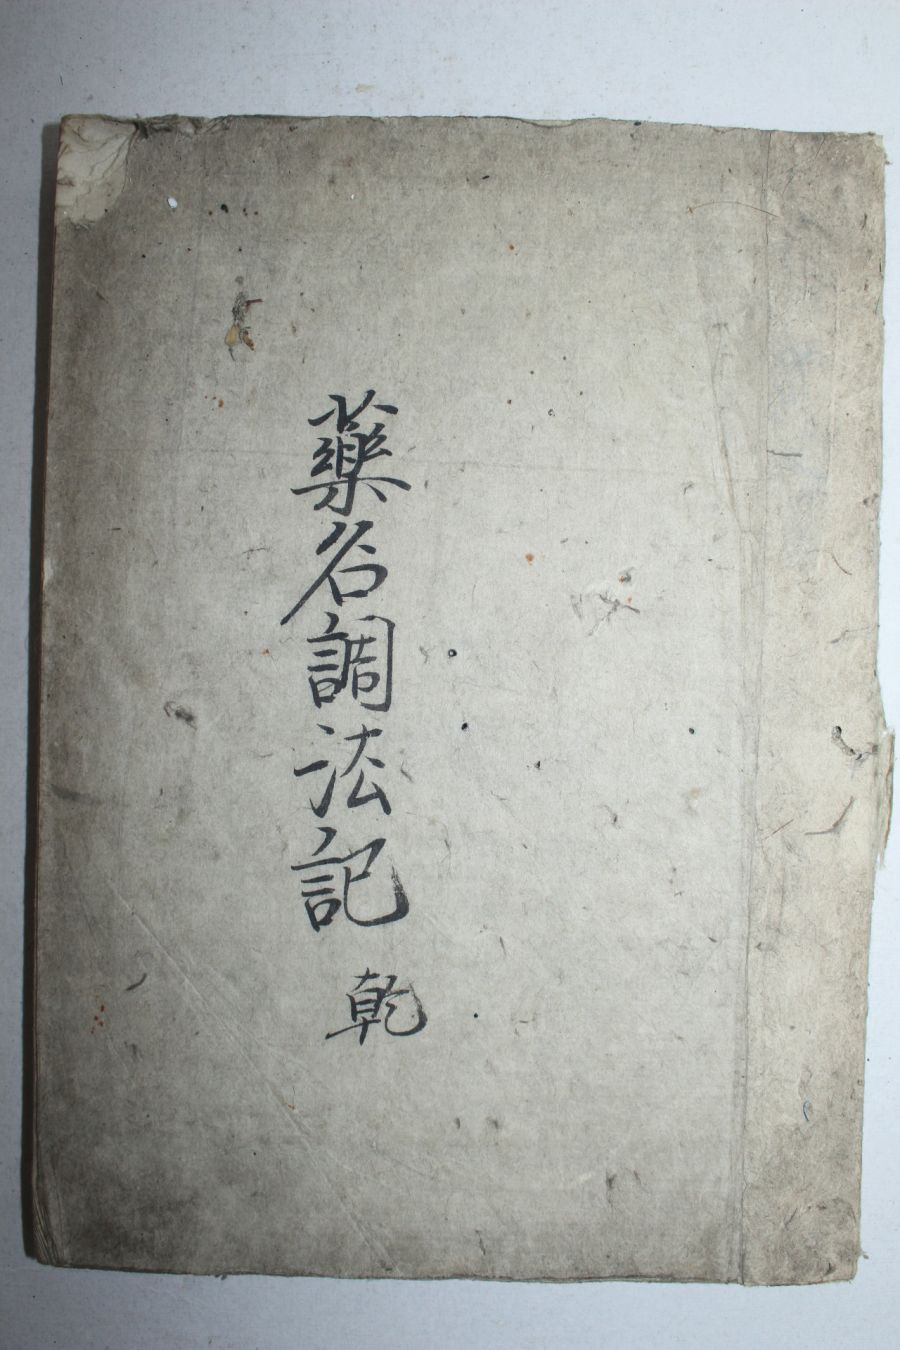 藥名調法記 乾